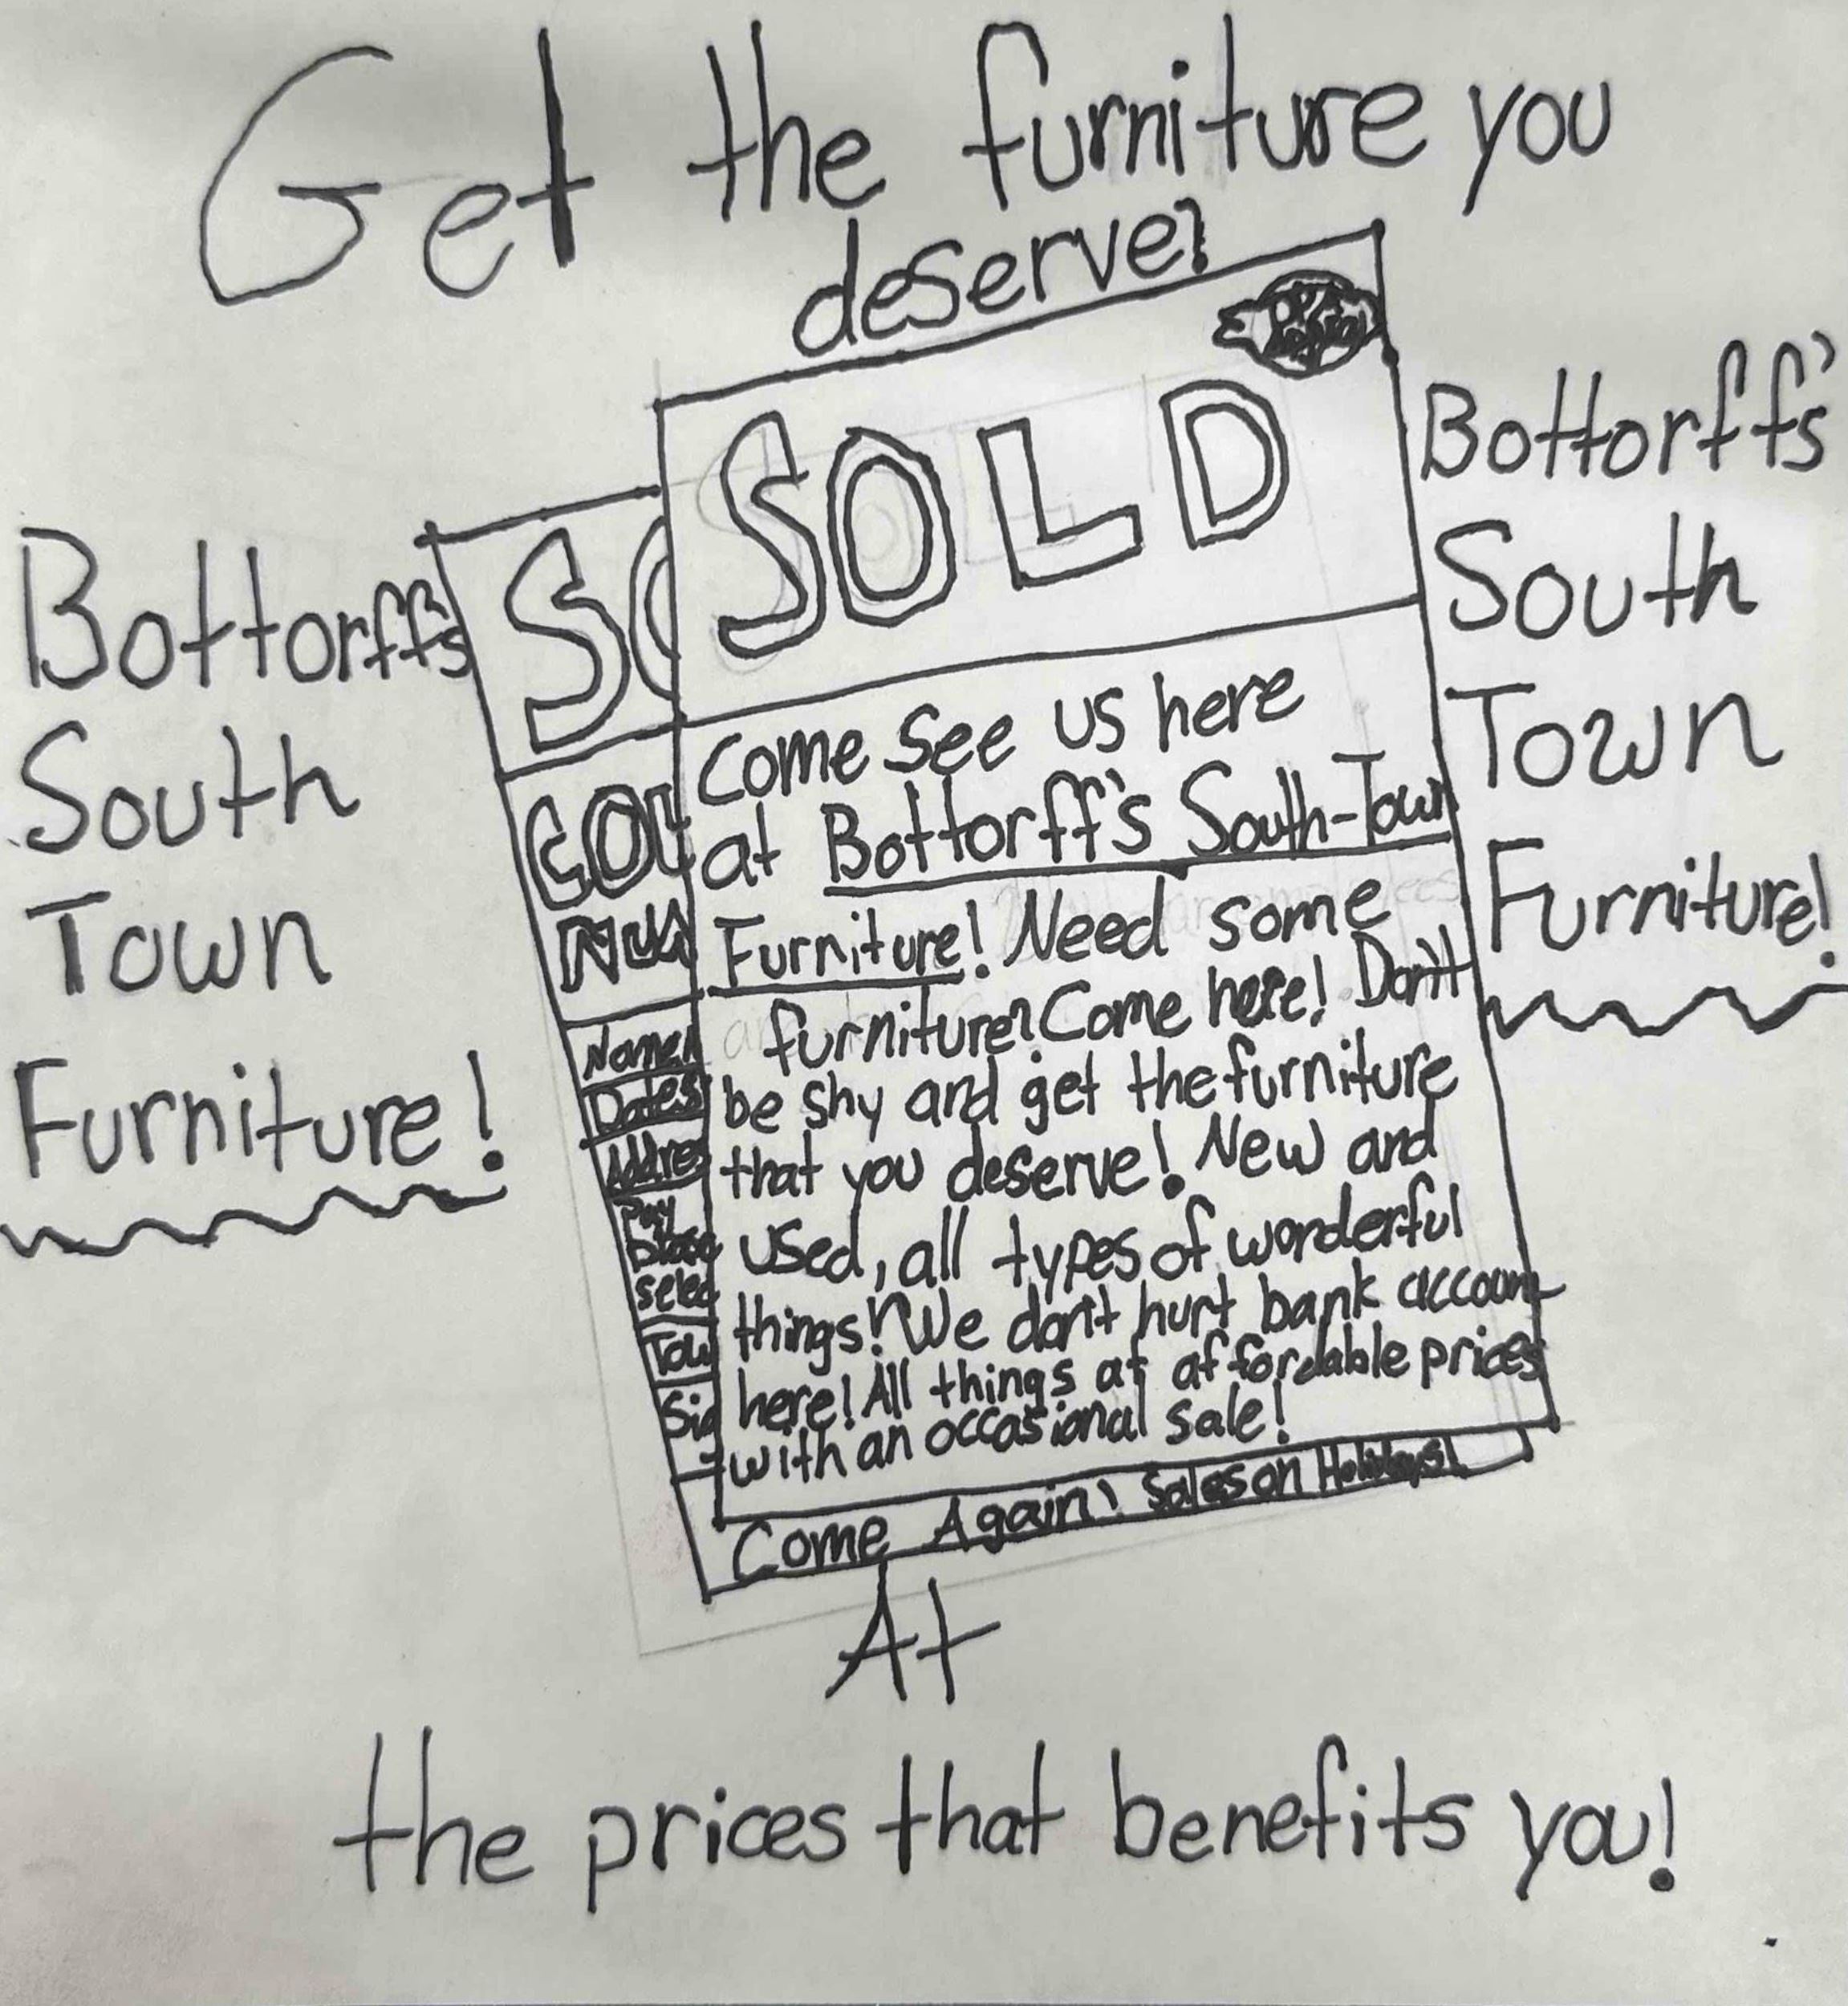 Get the furniture you
deserve?
Bottorff's
South
Town
Furniture!
SOLD
Come see us here
at Bottorff's South-Town
Furniture! Need some
furniture? Come here! Don't
be shy and get the furniture
that you deserve! New and
used, all types of wonderful
things! We don't hurt bank account
here! All things at affordable prices
with an occasional sale!
Come Again! Sales on Holidays!
SO
Name
Dates
Addres
Pay
selec
Tow
Sig
Bottorff's
South
Town
Furniture!
At
the prices that benefits you!